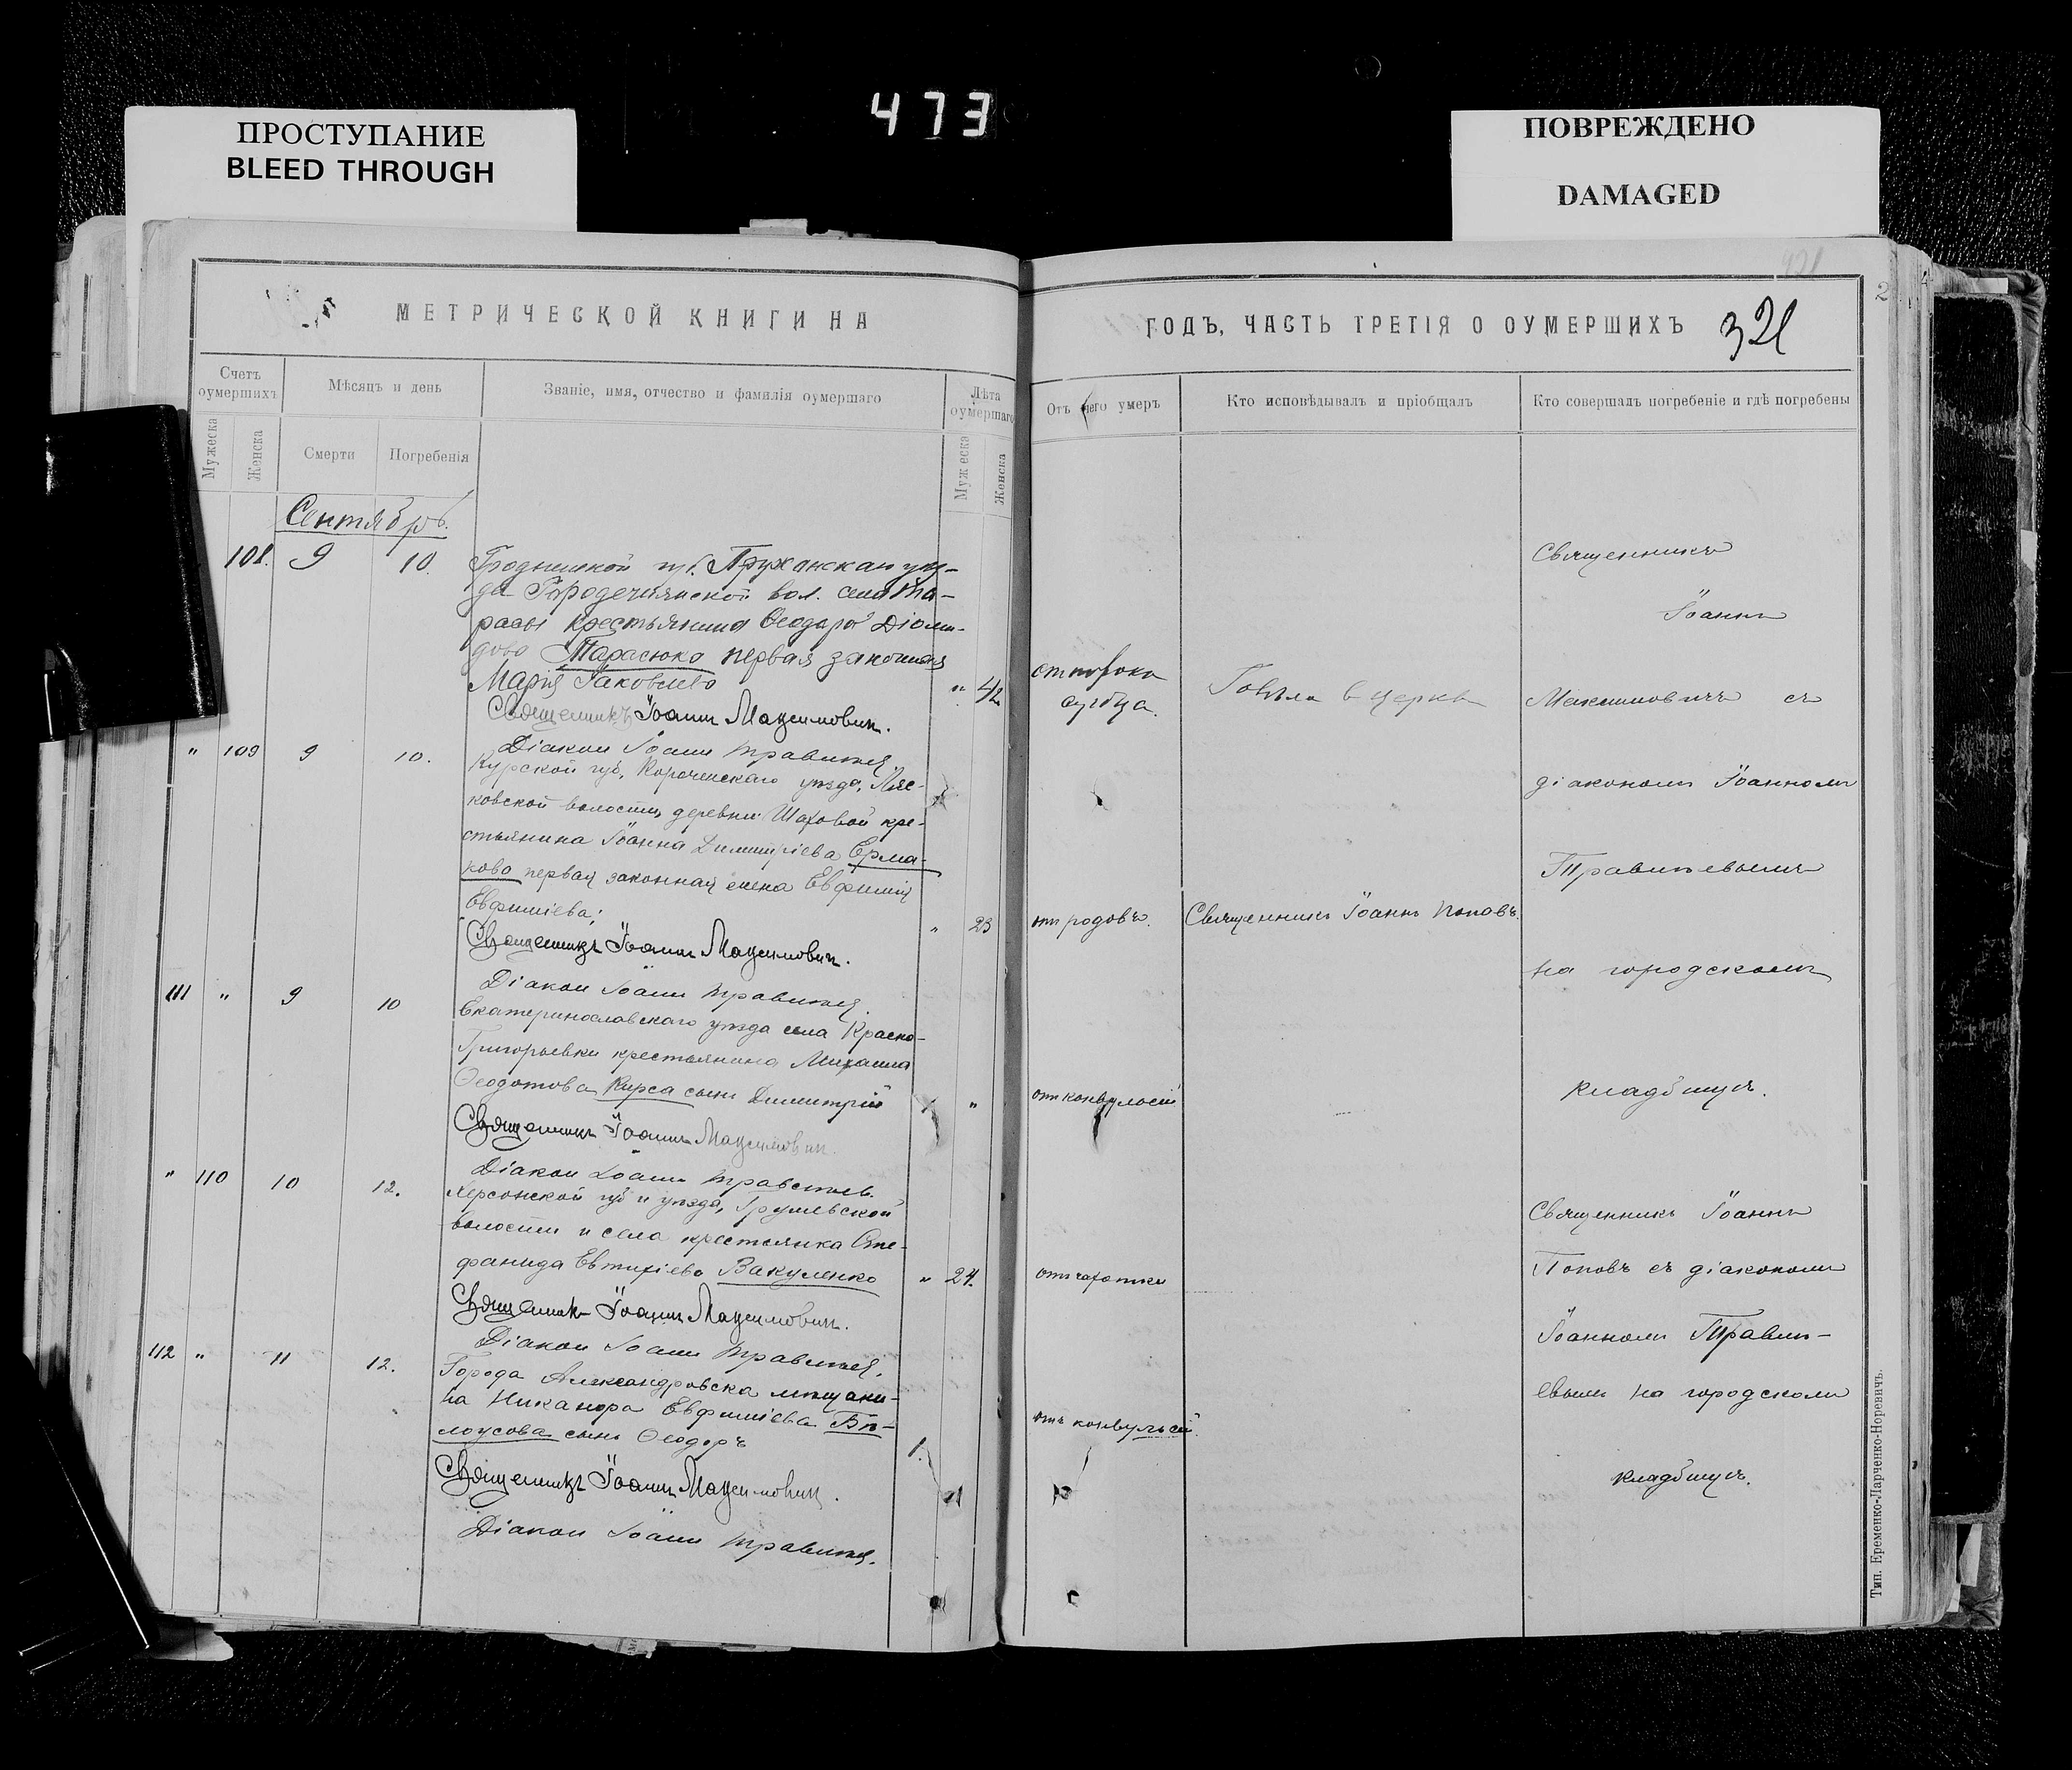 473
ПРОСТУПАНИЕ
BLEED THROUGH
ПОВРЕЖДЕНО
DAMAGED
МЕТРИЧЕСКОЙ КНИГИ НА
Счетъ оумершихъ
Мѣсяцъ и день
Званіе, имя, отчество и фамилія оумершаго
Лѣта оумершаго
Мужеска
Женска
Смерти
Погребенія
Муж еска
Женска
Сентябрь.
108. 9 10. Гродненской губ. Пружанскаго уѣз-
да Городечнянской вол. села Та-
расы крестьянина Ѳеодора Діоми-
дова Тарасюка первая законная
Марія Іаковлева " 42
Священникъ Іоаннъ Максимовичъ.
Діаконъ Іоаннъ Травинъ
" 109 9 10.
Курской губ, Корочанскаго уѣзда,
ковской волости, деревни Шаховой кре-
стьянина Іоанна Димитріева Ерма-
кова первая законная жена Евфимія
Евфиміева; " 23
Священникъ Іоаннъ Максимовичъ.
Діаконъ Іоаннъ
111 " 9 10
Екатеринославскаго уѣзда села Красно-
Григорьевки крестьянина Михаила
Ѳеодотова Кирса сынъ Димитрій "
Священникъ Іоаннъ Максимовичъ.
Діаконъ Іоаннъ
" 110 10 12.
Херсонской губ и уѣзда, Грушевской
волости и села крестьянка Сте-
фанида Евтихіева Вакуленко " 24.
Священникъ Іоаннъ Максимовичъ.
Діаконъ Іоаннъ
112 " 11 12.
Города Александровска мѣщани-
на Никанора Евфиміева Бѣ-
лоусова сынъ Ѳеодоръ 1.
Священникъ Іоаннъ Максимовичъ.
Діаконъ Іоаннъ
ГОДЪ, ЧАСТЬ ТРЕТІЯ О ОУМЕРШИХЪ
321
2
Отъ чего умеръ
Кто исповѣдывалъ и пріобщалъ
Кто совершалъ погребеніе и гдѣ погребены
от порока
сердца.
Говѣла в церкви
отъ родовъ.
Священникъ Іоаннъ Поповъ.
отъ конвульсій
отъ чахотки
отъ конвульсій.
Священникъ
Іоаннъ
Максимовичъ съ
діакономъ Іоанномъ
на городскомъ
кладбищѣ.
Священникъ Іоаннъ
Поповъ съ діакономъ
Іоанномъ
евымъ на городскомъ
кладбищѣ.
Тип. Еременко-Ларченко-Норевичъ.